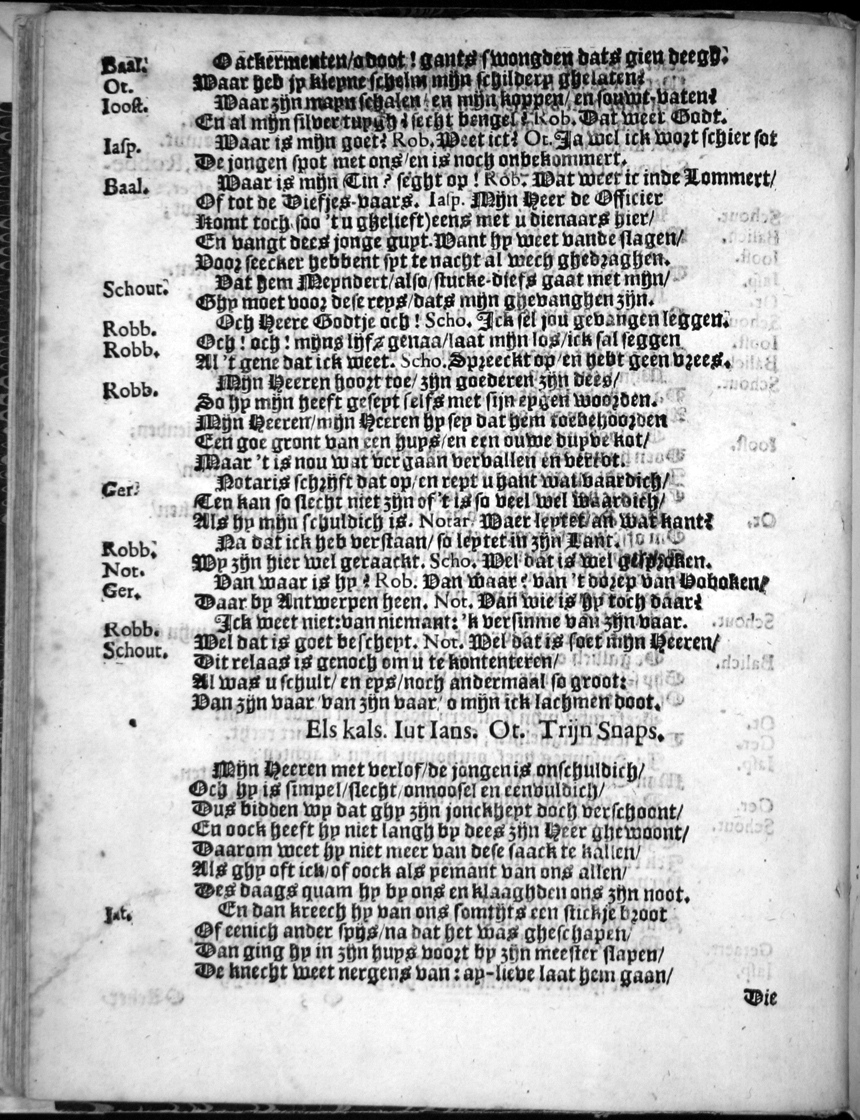 Baal. O ackermenten/o doot! gants swongden dats gien deegh.
Ot. Waar heb jy kleyne schelm mijn schildery ghelaten?
Ioost. Waar zijn mayn schalen/en mijn koppen/en souwt-vaten?
En al mijn silver tuygh? secht bengel? Rob. Dat weer Godt.
Iasp. Waar is mijn goet? Rob. Weet ick? Ot. Ja wel ick wort schier sot
De jongen spot met ons/en is noch onbekommert.
Baal. Waar is mijn Tin? seght op! Rob. Wat weet ic inde Lommert/
Of tot de Diefjes-vaars. Iasp. Mijn Heer de Officier
Komt toch (soo 't u ghelieft) eens met u dienaars hier/
En vangt dees jonge guyt. Want hy weet vande slagen/
Voor seecker hebbent syt te nacht al wech ghedraghen.
Schout. Dat hem Meyndert/also/stucke-diefs gaat met mijn/
Ghy moet voor dese reys/dats mijn ghevanghen zijn.
Robb. Och Heere Godtje och! Scho. Ick sel jou gevangen leggen.
Robb. Och! och! mijns lijfs genaa/laat mijn los/ick sal seggen
Al 't gene dat ick weet. Scho. Spreeckt op/en hebt geen vrees.
Robb. Mijn Heeren hoort toe/zijn goederen zijn dees/
So hy mijn heeft geseyt selfs met sijn eygen woorden.
Mijn Heeren/mijn Heeren hy sey dat hem toebehoorden
Een goe gront van een huys/en een ouwe duyve kot/
Maar 't is nou wat vergaan vervallen en verrot.
Ger. Notaris schrijft dat op/en rept u hant wat vaardich/
Ten kan so slecht niet zijn of 't is so veel wel waardich/
Als hy mijn schuldich is. Notar. Waer leytet an wat kant?
Robb. Na dat ick heb verstaan/so leytet in zijn Lant.
Not. Wy zijn hier wel geraackt. Scho. Wel dat is wel gesproken.
Ger. Van waar is hy? Rob. Van waar? van 't dorep van Hoboken/
Daar by Antwerpen heen. Not. Van wie is hy toch daar?
Robb. Ick weet niet: van niemant: 'k versinme van zijn vaar.
Schout. Wel dat is goet bescheyt. Not. Wel dat is soet mijn Heeren/
Dit relaas is genoch om u te kontenteren/
Al was u schult/en eys/noch andermaal so groot:
Van zijn vaar/van zijn vaar/o mijn ick lachmen doot.
Els kals. Iut Ians. Ot. Trijn Snaps.
Mijn Heeren met verlof/de jongen is onschuldich/
Och hy is simpel/slecht/onnoosel en eenvuldich/
Dus bidden wy dat ghy zijn jonckheyt doch verschoont/
En oock heeft hy niet langh by dees zijn Heer ghewoont/
Daarom weet hy niet meer van dese saack te kallen/
Als ghy oft ick/of oock als yemant van ons allen/
Des daags quam hy by ons en klaaghden ons zijn noot.
Iut. En dan kreech hy van ons somtijts een stickje broot
Of eenich ander spijs/na dat het was gheschapen/
Dan ging hy in zijn huys voort by zijn meester slapen/
De knecht weet nergens van: ay-lieve laat hem gaan/
Die